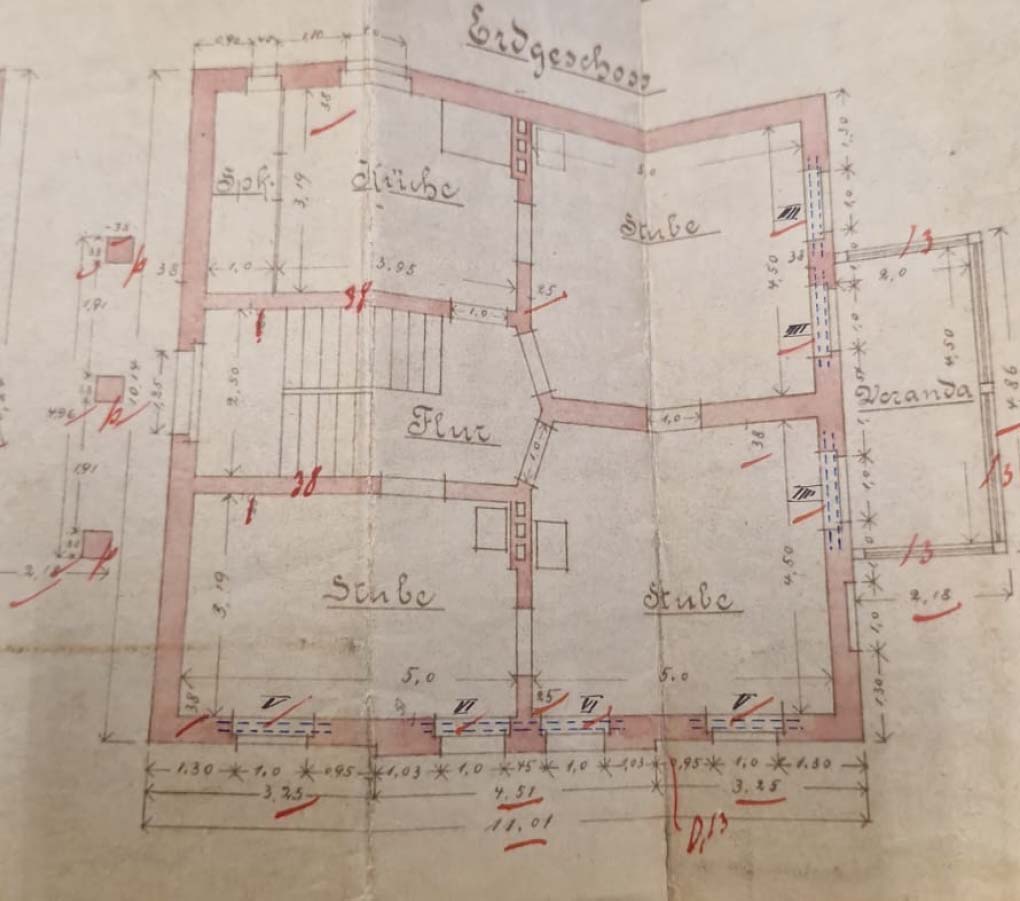 Erdgeschoss
1,10
38
Spk.
3,19
Küche
1,0
3,95
38
Stube
5,0
4,50
38
25
1,0
-38
1,91
4,96
10,14
1,25
1,91
2,50
Flur
38
38
1,0
1,0
38
1,30
1,0
1,0
13
2,0
4,50
Veranda
4,86
13
13
2,18
1,0
1,30
III
III
III
3,19
Stube
5,0
Stube
5,0
4,50
38
V
VI
25
VI
V
1.30
1.0
0,95
1,03
1.0
45
1.0
1,03
0,95
1.0
1.30
3.25
4.51
3.25
11.01
0,13